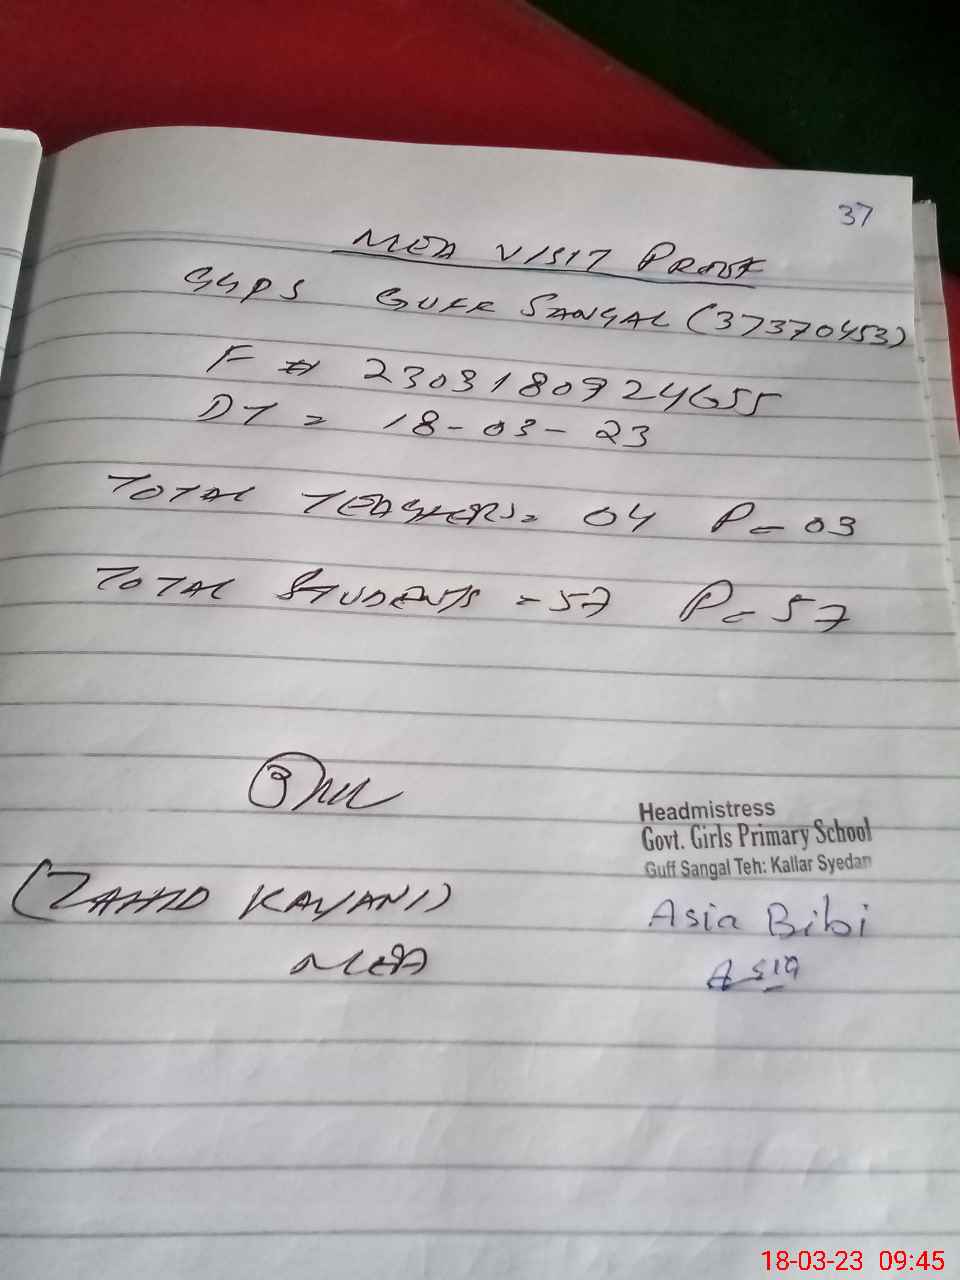 37
MEA VISIT PROOF
GGPS GUFF SANGAL (37370453)
F # 2303180924655
DT = 18-03-23
TOTAL TEACHERS = 04 P = 03
TOTAL STUDENTS = 57 P = 57
Headmistress
Govt. Girls Primary School
Guff Sangal Teh: Kallar Syedan
(ZAHID KAYANI)
MEA
Asia Bibi
Asia
18-03-23 09:45